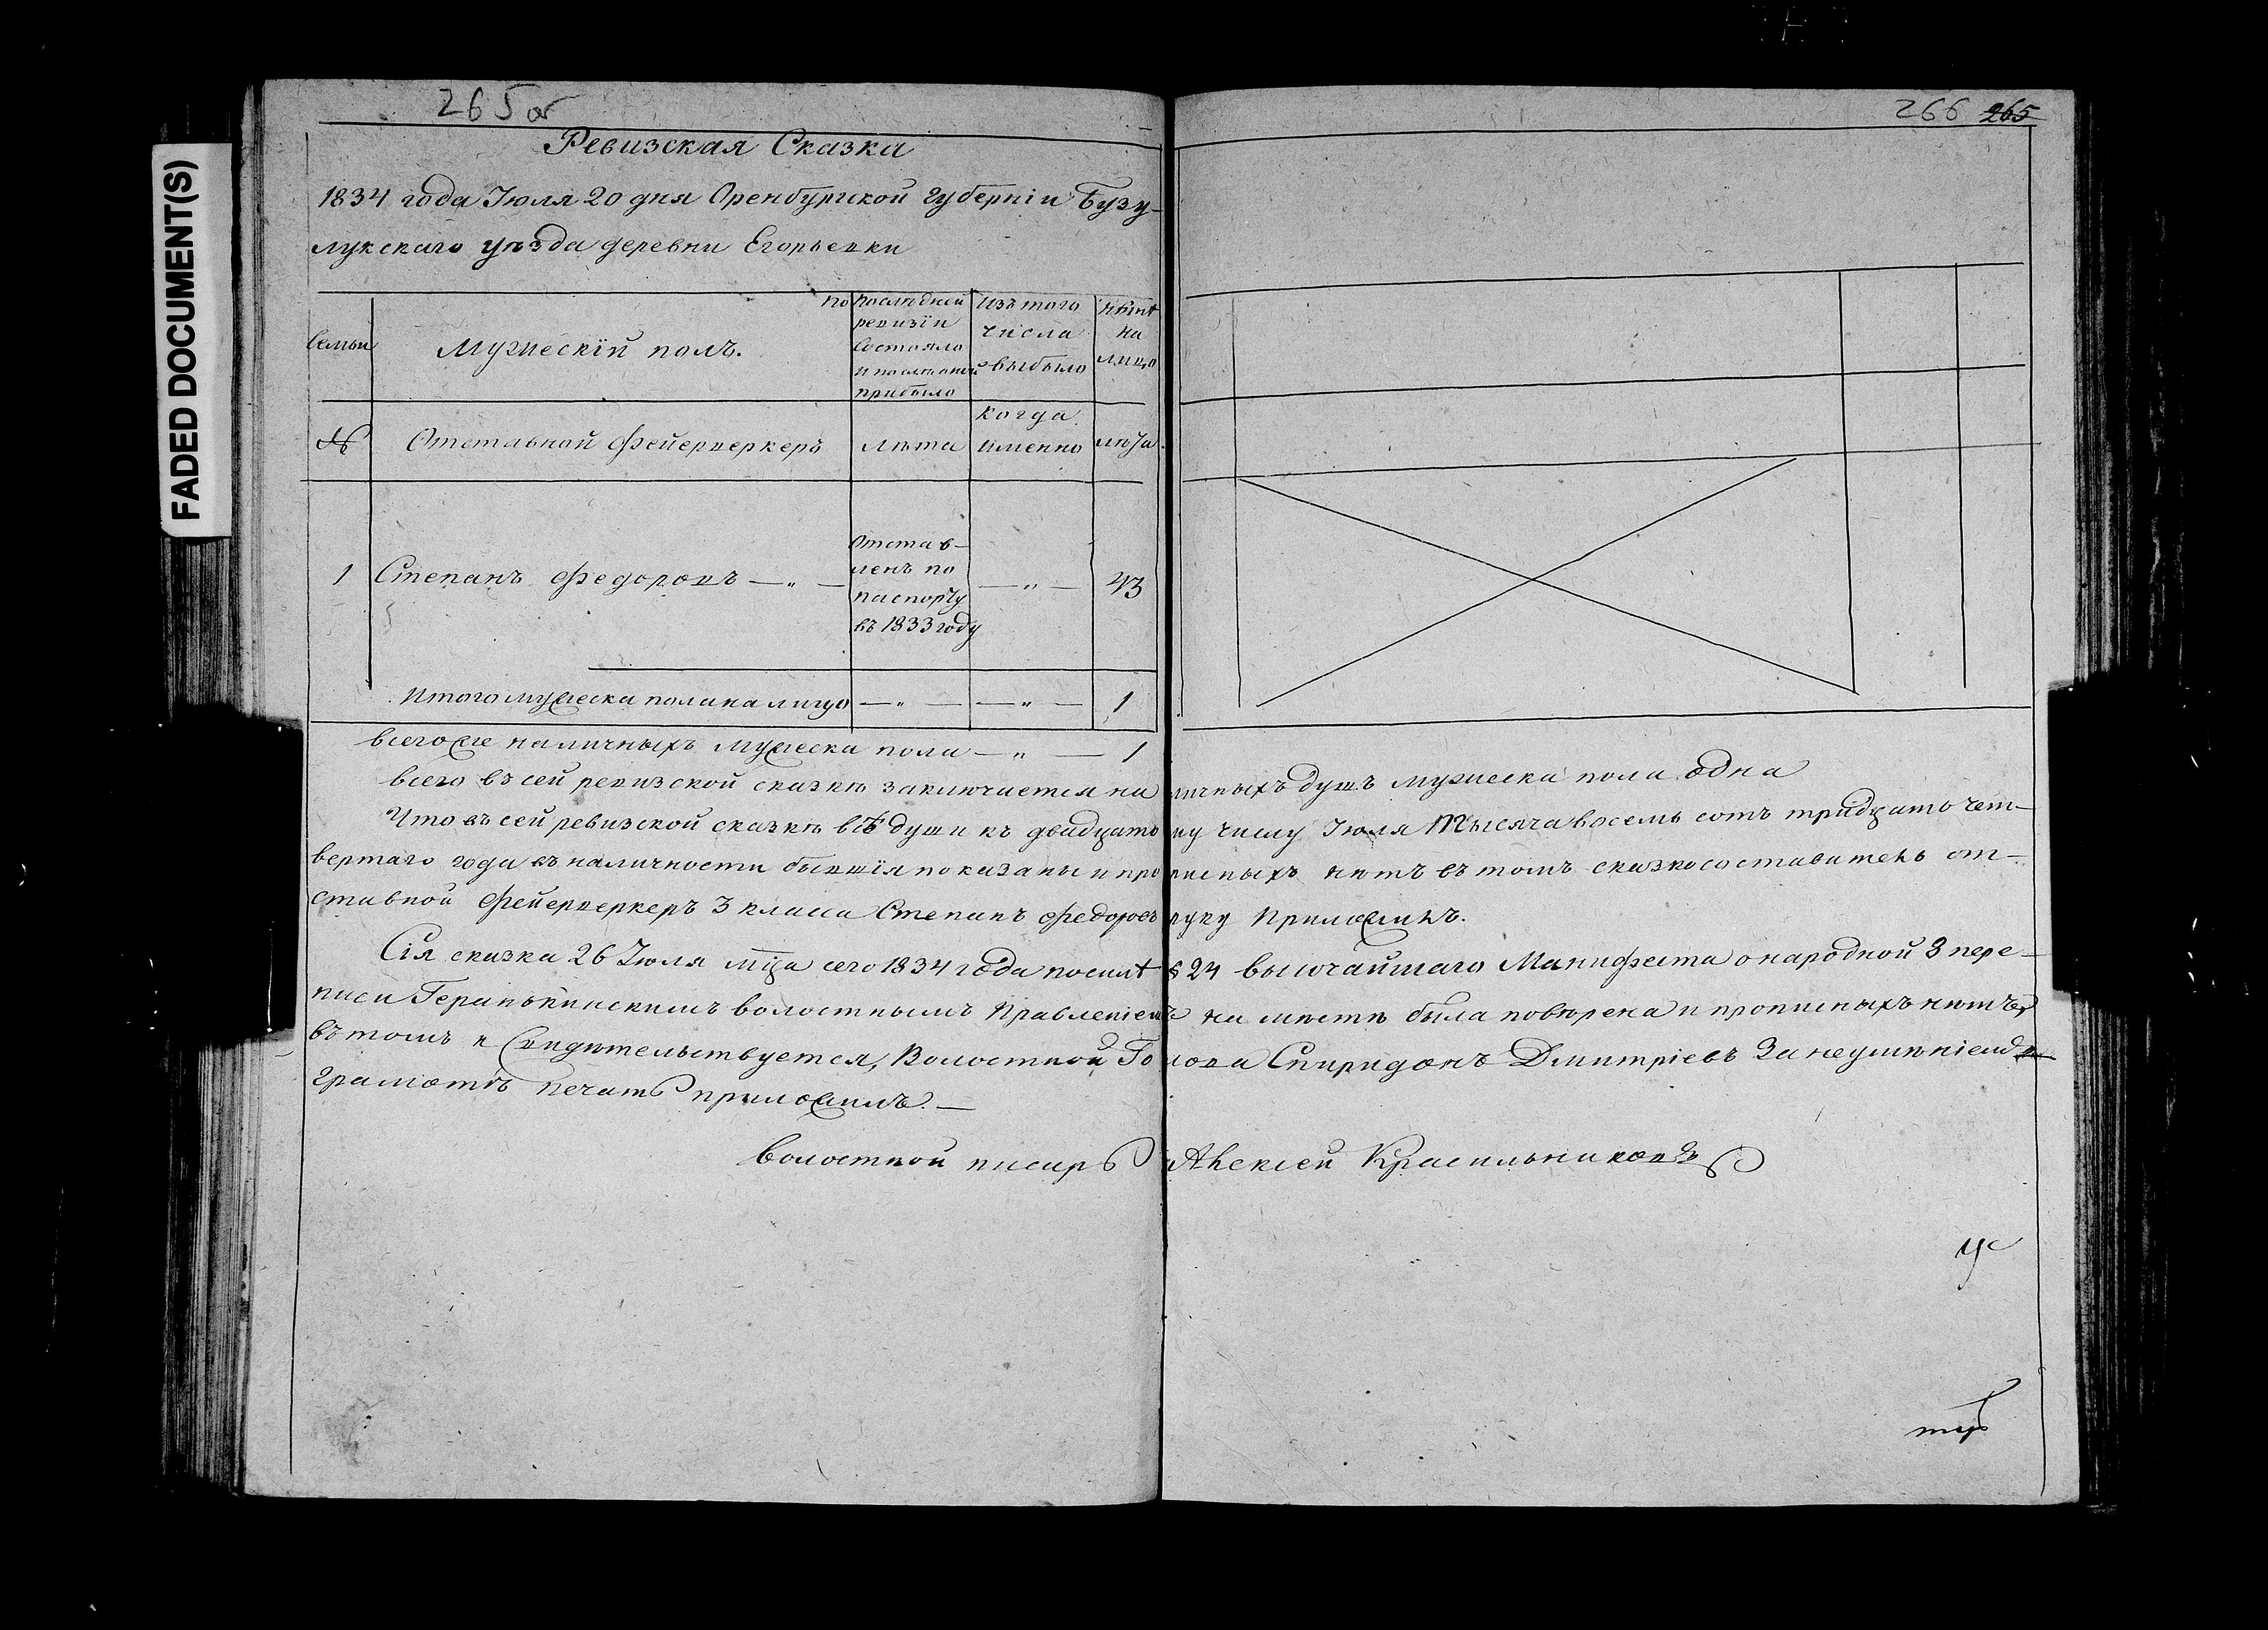 265 об
266 265
FADED DOCUMENT(S)
Ревизская Сказка
1834 года Июля 20 дня Оренбургской губернiи Бузу-
лукскаго уѣзда деревни Егорьевки
Семьи
Мужескiй полъ.
по последней
ревизiи
состояло
и после оной
прибыло
Изъ того
числа
выбыло
нынѣ
на
лицо
№
Отставной фейерверкеръ
лѣта
когда
именно
лѣта.
1
Степанъ Федоровъ — „ —
Отстав-
ленъ по
паспорту
въ 1833 году
— „ —
43
Итого мужеска пола на лицо — „ — — „ — 1
всего же наличныхъ мужеска пола — „ — 1
всего въ сей ревизской сказкѣ заключается наличныхъ душъ мужеска пола одна
Что въ сей ревизской сказкѣ всѣ души къ двадцатому числу Июля тысяча восемь сотъ тридцать чет-
вертаго года въ наличности бывшiя показаны и прописныхъ нѣтъ въ томъ сказкосоставитель от-
ставной фейерверкеръ 3 класса Степанъ Федоровъ руку приложилъ.
Сiя сказка 26 Июля мца сего 1834 года по силѣ § 24 высочайшаго Манифеста о народной 8 пере-
писи Геранькинскимъ волостнымъ Правленiемъ на мѣстѣ была повѣрена и прописныхъ нѣтъ
въ томъ и свидѣтельствуется, Волостной Голова Спиридонъ Дмитрiевъ За неумѣнiемъ
грамотѣ печать приложилъ. —
Волостной писарь Алексей Красильниковъ